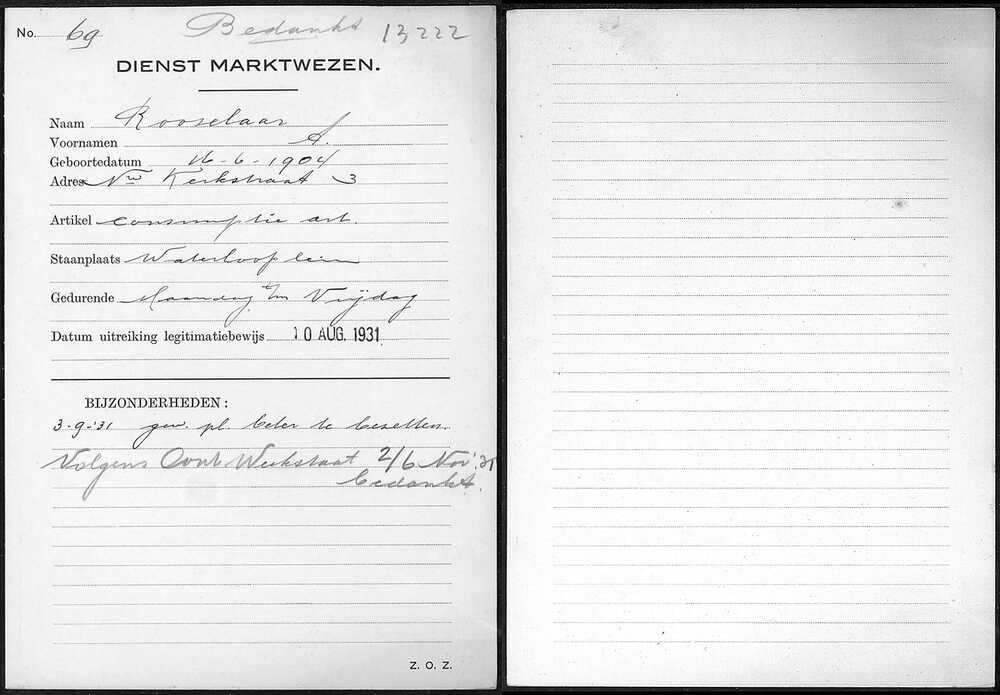 No. 69 Bedankt 13222
DIENST MARKTWEZEN.
Naam Rooselaar
Voornamen A.
Geboortedatum 16-6-1904
Adres Nwe Kerkstraat 3
Artikel consumptie art.
Staanplaats Waterlooplein
Gedurende Maandag t/m Vrijdag
Datum uitreiking legitimatiebewijs 10 AUG. 1931
BIJZONDERHEDEN:
3-9-'31 gew. pl. beter te bezetten.
Volgens Cont Werkstaat 2/6 Nov '31
bedankt.
Z. O. Z.